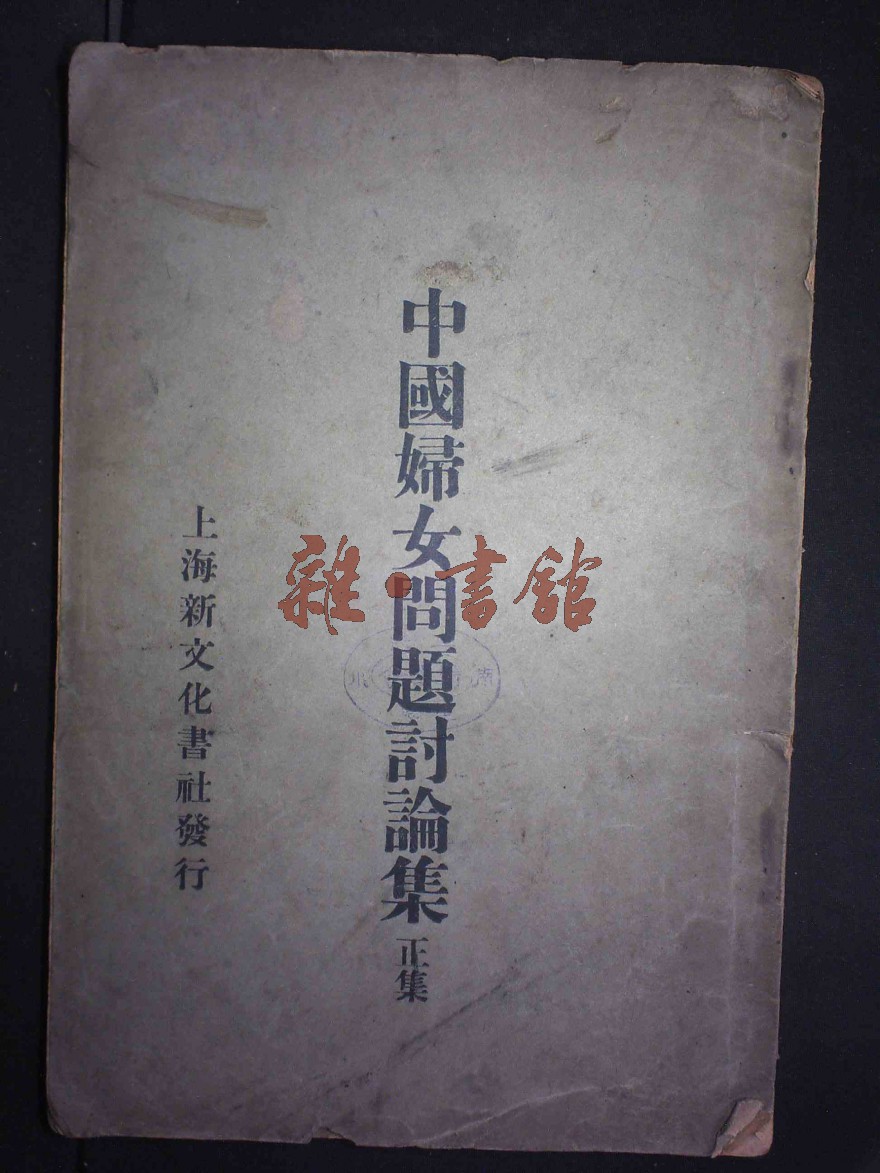 中國婦女問題討論集 正集
上海新文化書社發行
雜·書館